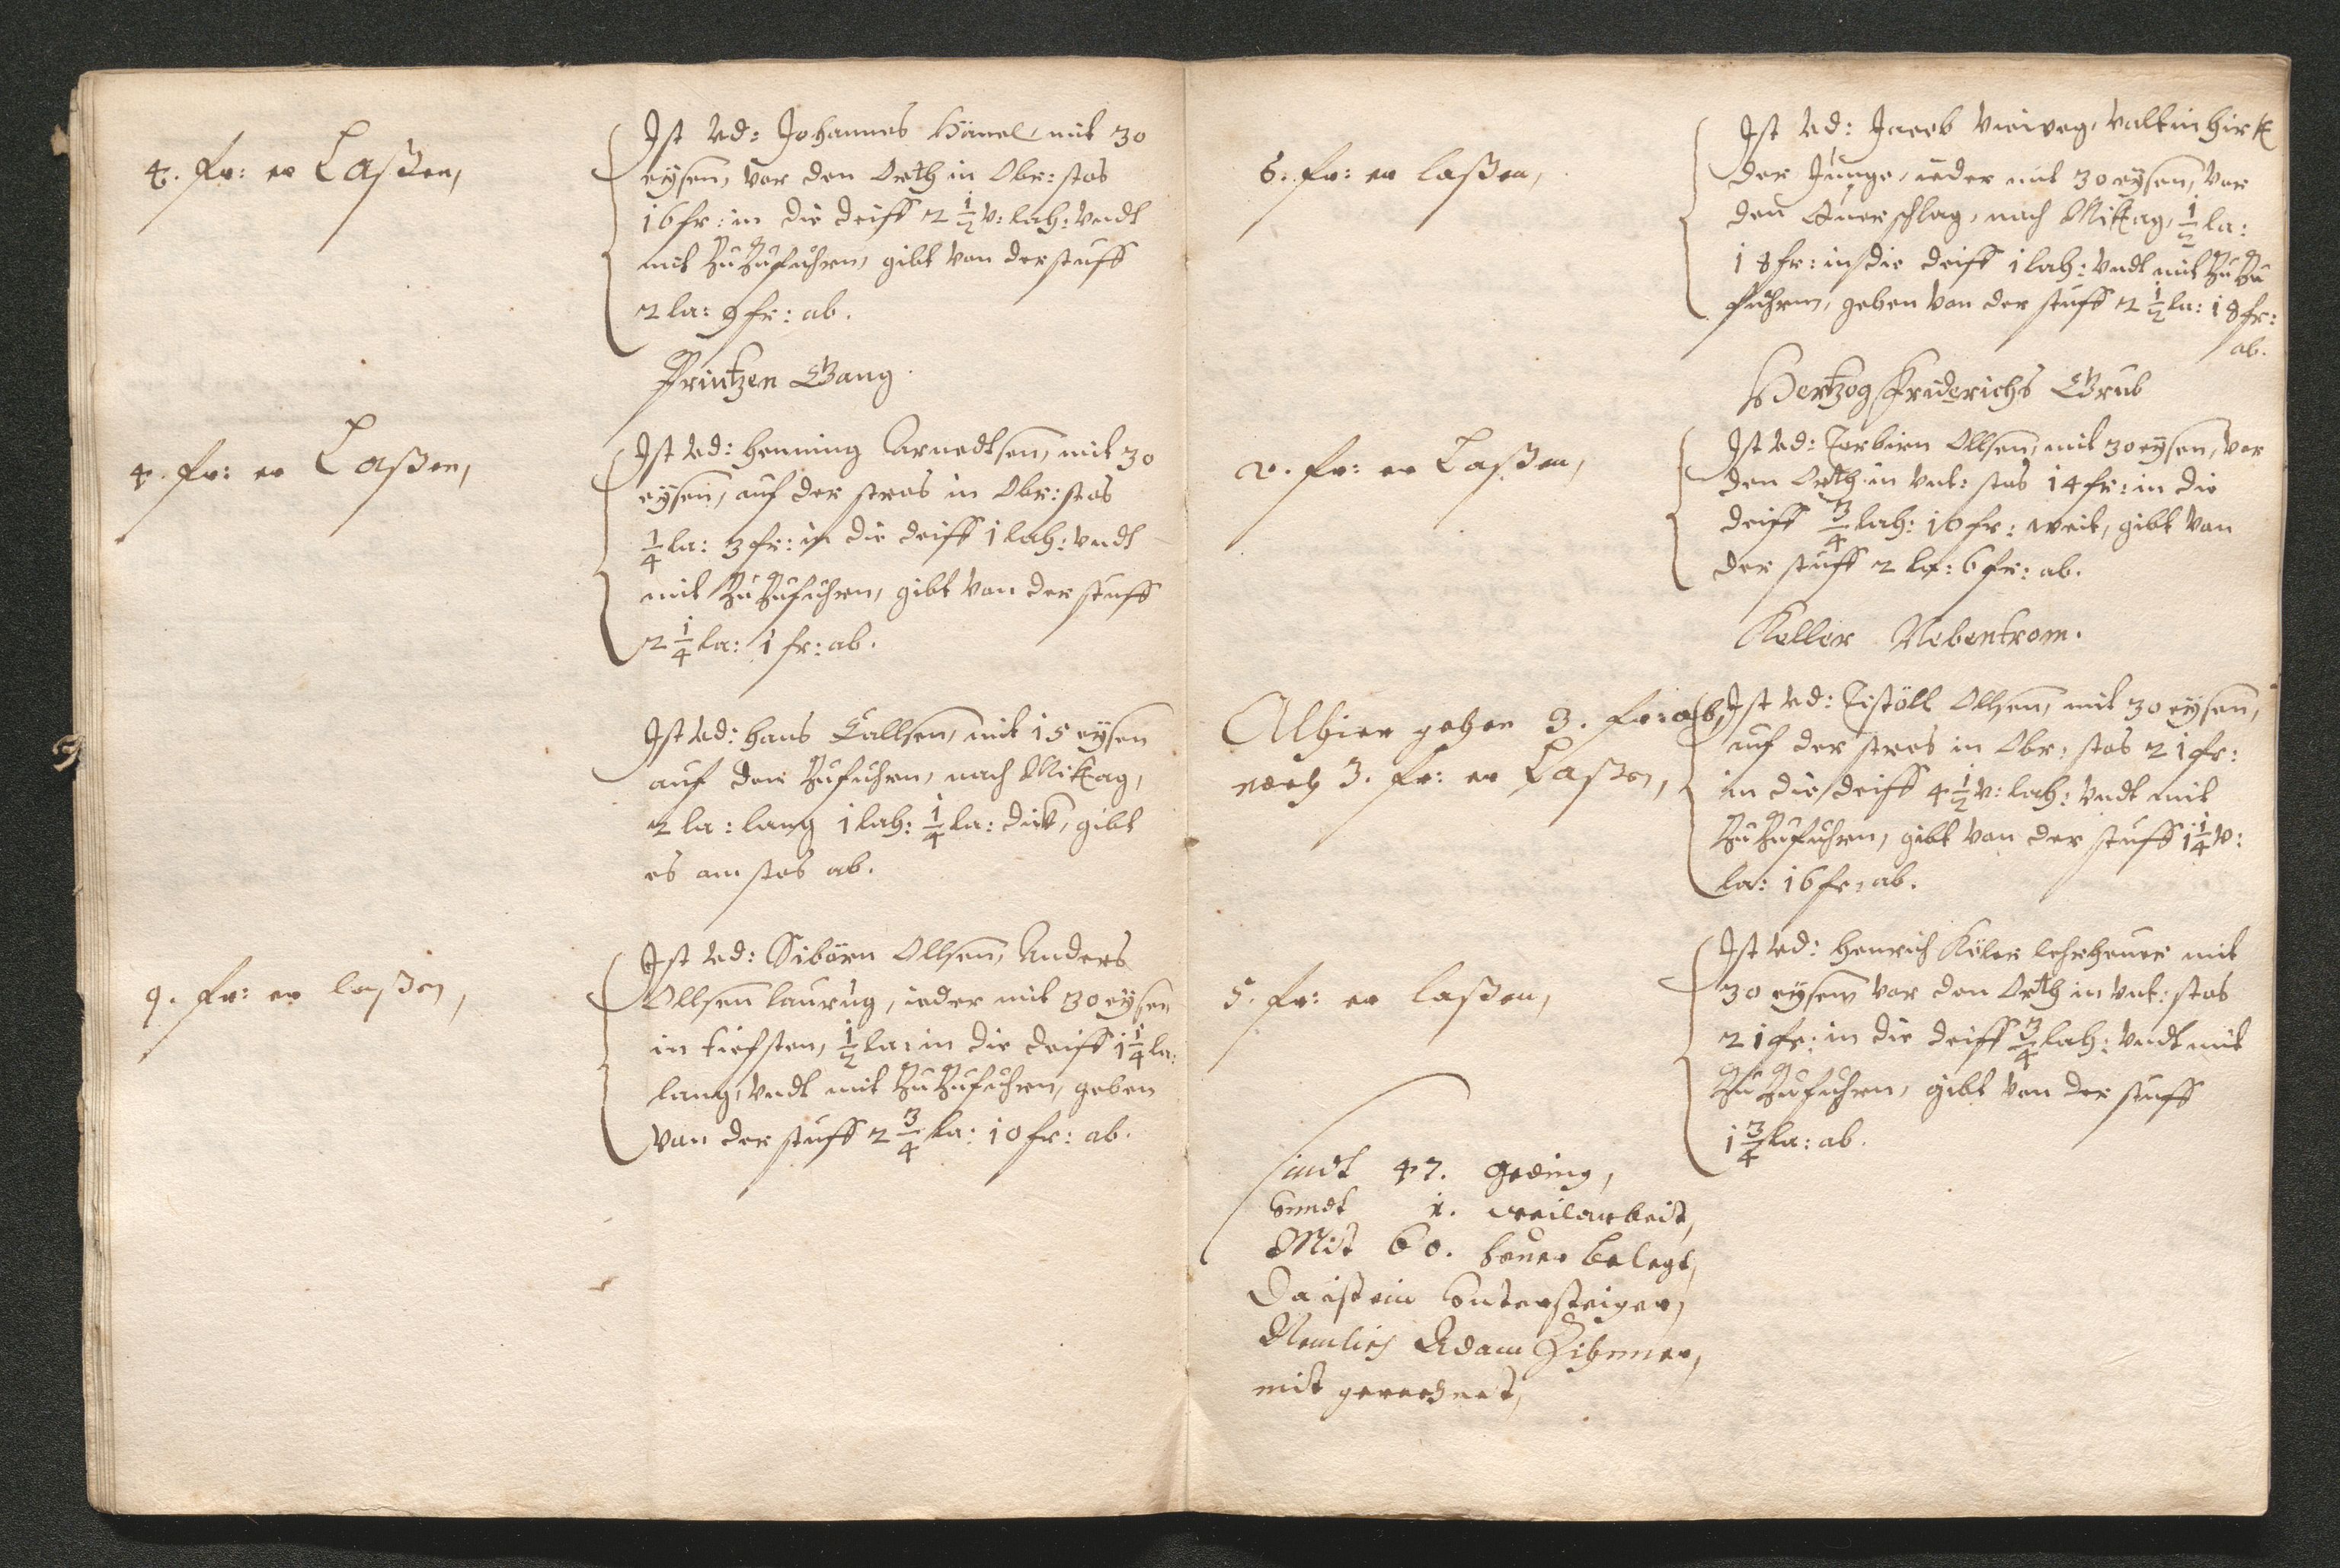 4. fr: er Laßen,
Ist vd: Johannes Hämel, mit 30
eysen, vor den Orth in Obr: stos
16 fr: in die deiff 2 1/2 v: lah: vndt
mit Zu Zufuhren, gibt von der stuff
2 la: 9 fr: ab.
Printzen Gang.
4. fr: er Laßen,
Ist vd: Henning Arnedtsen, mit 30
eysen, auf der stros in Obr: stos
1/4 la: 3 fr: in die deiff 1 lah: vndt
mit Zu Zufuhren, gibt von der stuff
2 1/4 la: 1 fr: ab.
Ist vd: Hans Callsen, mit 15 eysen
auf den Zufuhren, nach Mittag,
2 la: lang 1 lah: 1/4 la: dick, gibt
es am stos ab.
9. fr: er laßen,
Ist vd: Siborn Ollsen, Anders
Ollsen laurug, ieder mit 30 eysen
in tiefsten, 1/2 la: in die deiff 1 1/4 la:
lang, vndt mit Zu Zufuhren, geben
von der stuff 2 3/4 la: 10 fr: ab.
6. fr: er laßen,
Ist vd: Jacob Vieweg, Valtin Hirt
der Junge, ieder mit 30 eysen, vor
den Querschlag, nach Mittag, 1/2 la:
18 fr: in die deiff 1 lah: vndt mit Zu Zu
fuhren, geben von der stuff 2 1/2 la: 18 fr:
ab.
Hertzog Friderichs Grub
2. fr: er Laßen,
Ist vd: Torbiern Ollsen, mit 30 eysen, vor
den Orth in vnt: stos 14 fr: in die
deiff 3/4 lah: 10 fr: weit, gibt von
der stuff 2 la: 6 fr: ab.
Keller Nebentrom.
Alhier gehen 3. fr: ab,
noch 3. fr: er Laßen,
Ist vd: Tistöll Ollsen, mit 30 eysen,
auf der stros in Obr: stos 21 fr:
in die deiff 4 1/2 v: lah: vndt mit
Zu Zufuhren, gibt von der stuff 1 1/4 v:
la: 16 fr: ab.
5. fr: er laßen,
Ist vd: Henrich Köler lehrheuer mit
30 eysen vor den Orth in vnt: stos
21 fr: in die deiff 3/4 lah: vndt mit
Zu Zufuhren, gibt von der stuff
1 3/4 la: ab.
sindt 47. geding,
vnndt 1. weilarbeit,
Mit 60. heuer belegt,
Da ist ein Vntersteiger,
Nemlich Adam Zihmer,
mit gerechnet,